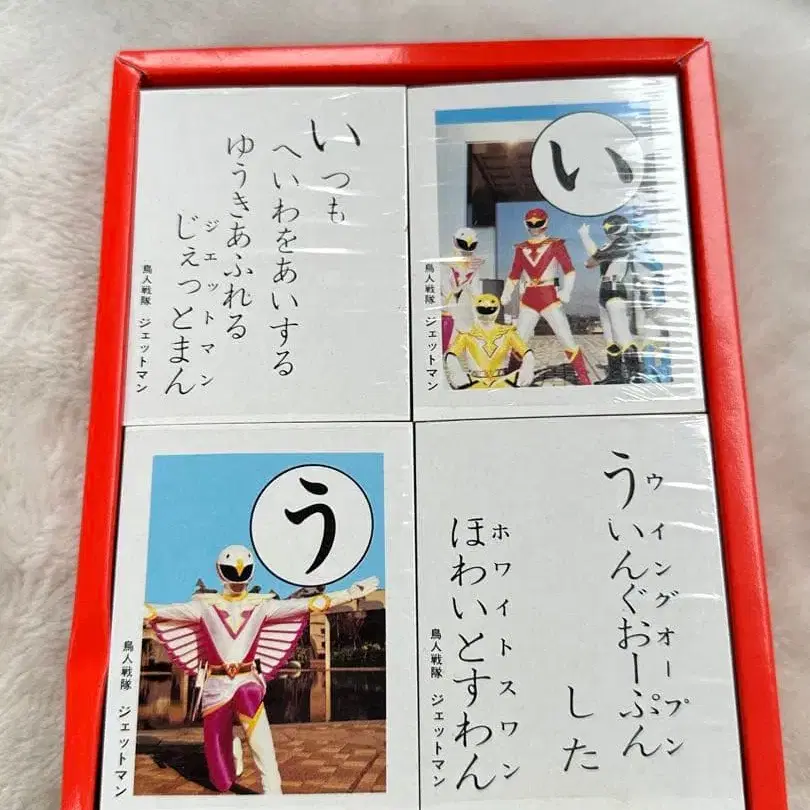 いつも
へいわをあいする
ゆうきあふれる
ジェットマン
じぇっとまん
鳥人戦隊 ジェットマン
い
鳥人戦隊 ジェットマン
う
鳥人戦隊 ジェットマン
ウイングオープン
ういんぐおーぷん
した
ホワイトスワン
ほわいとすわん
鳥人戦隊 ジェットマン